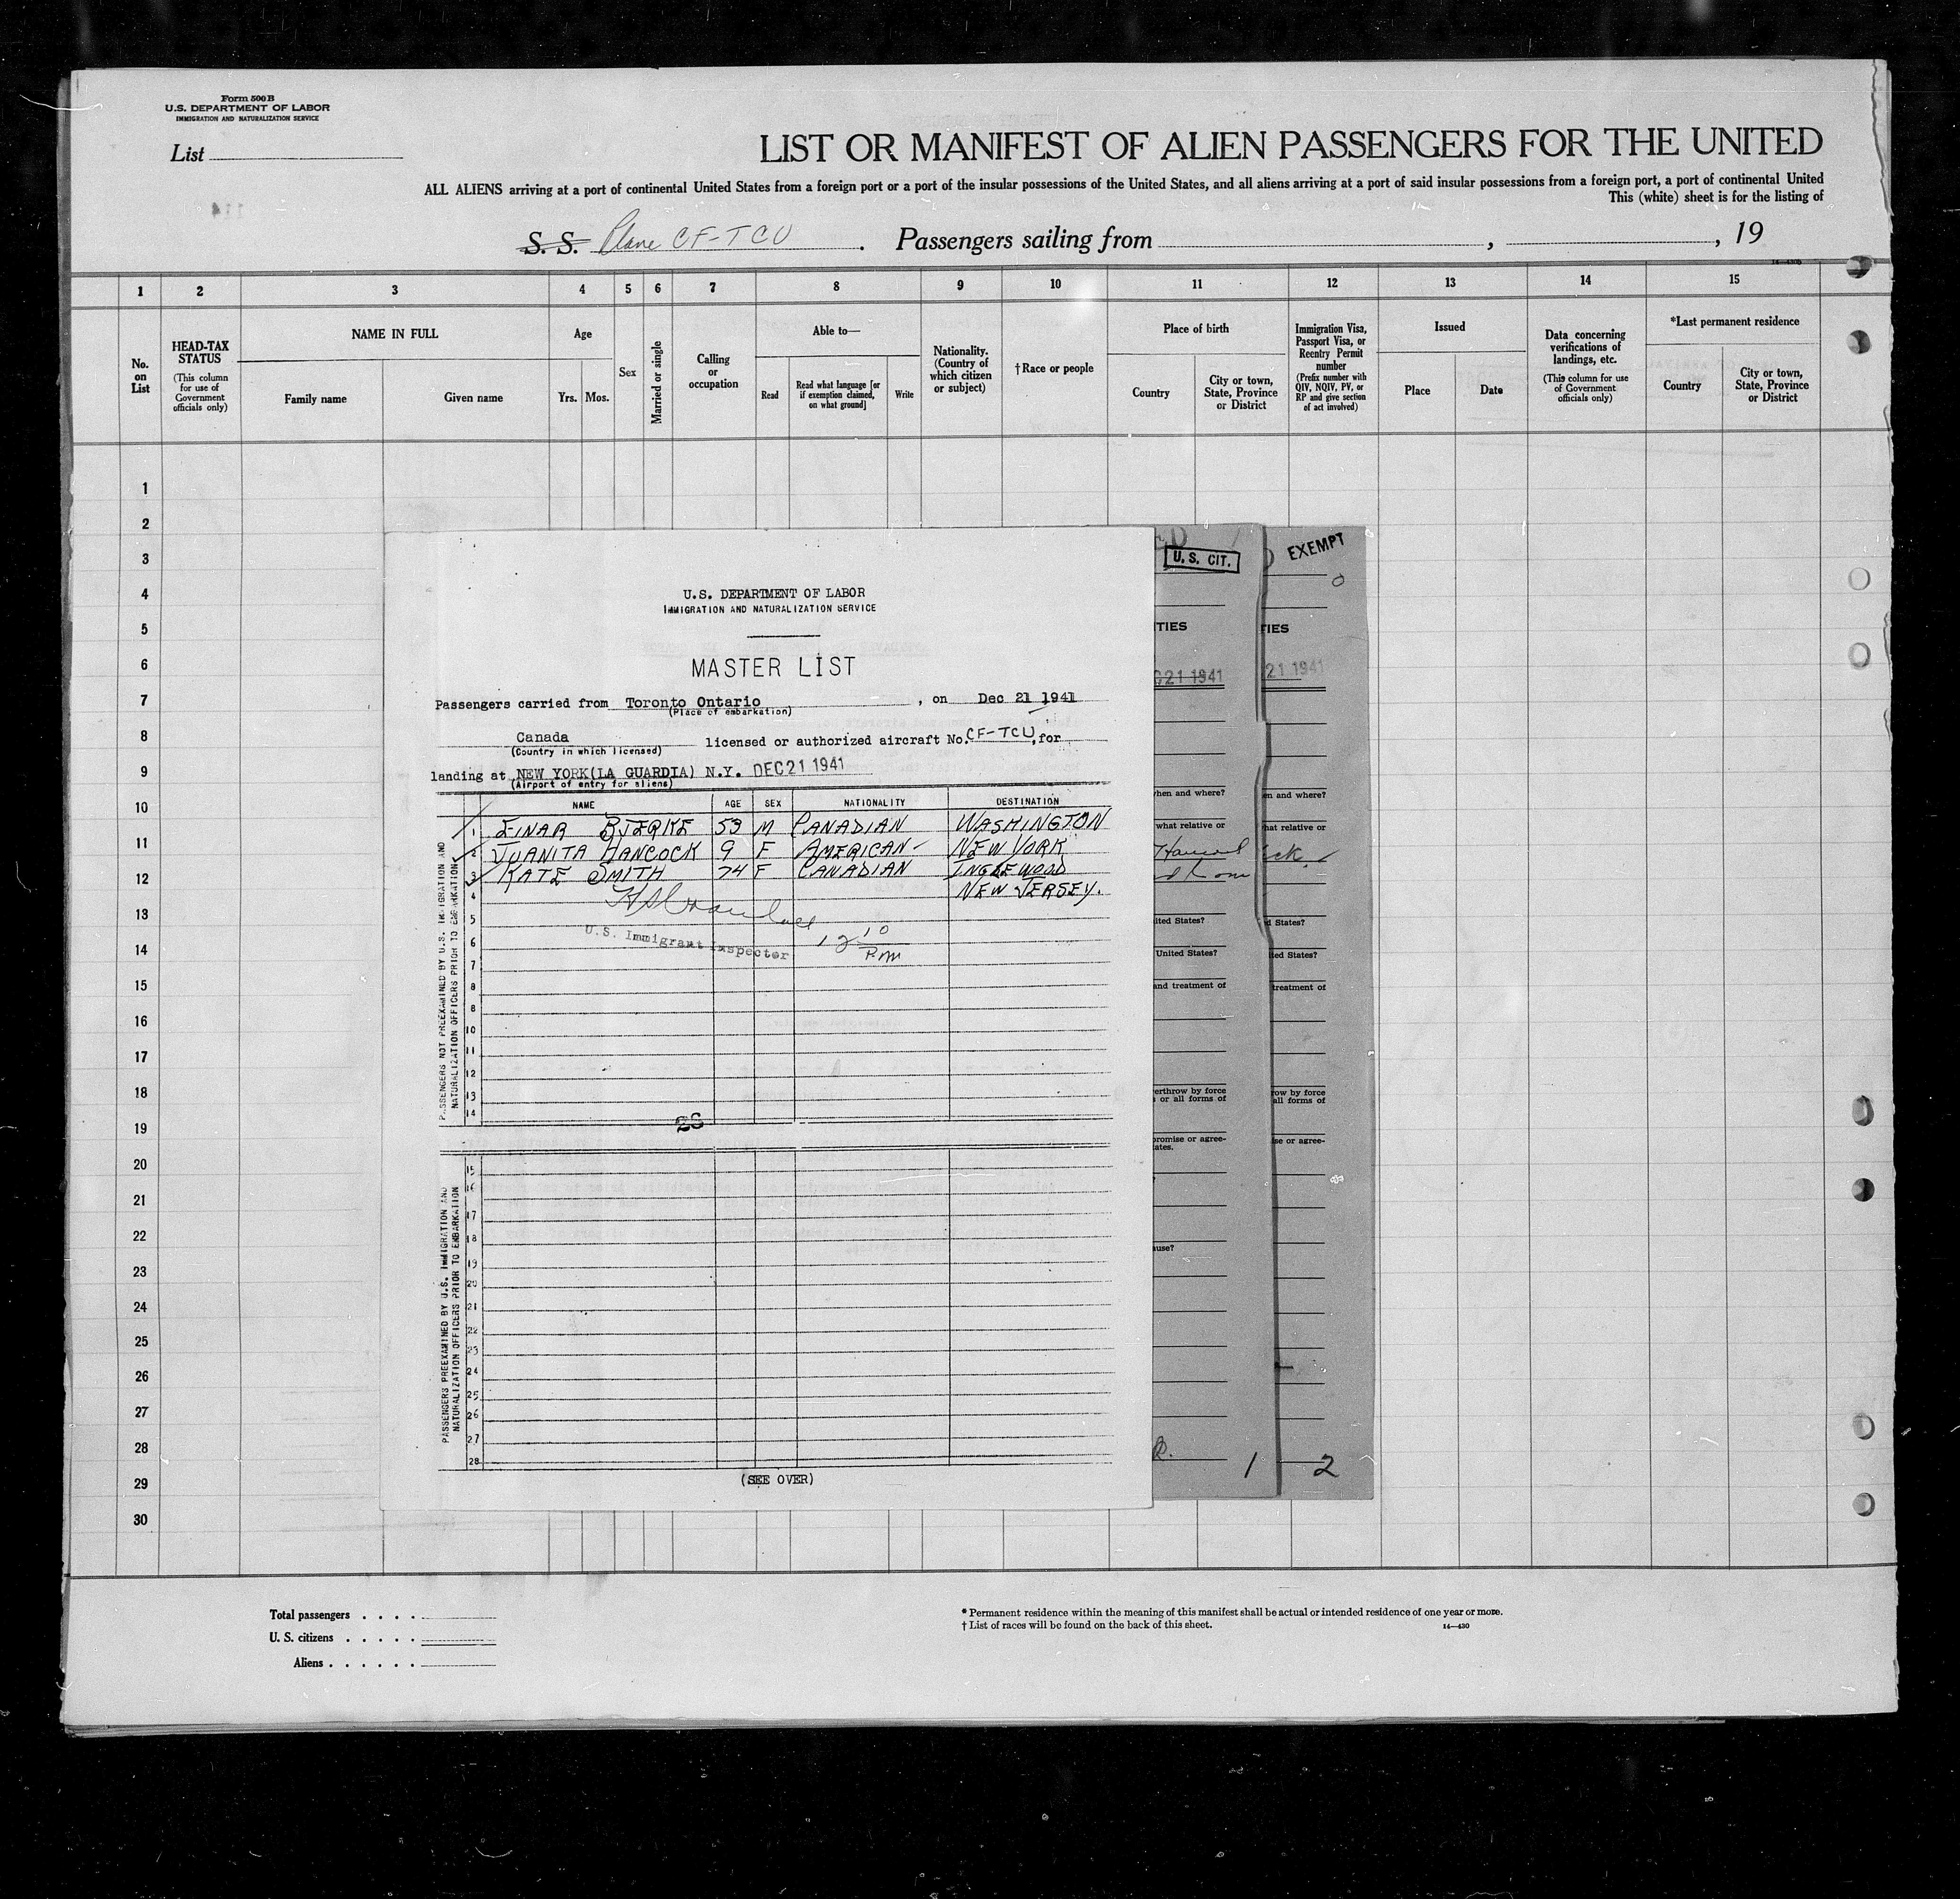 Form 500B
U.S. DEPARTMENT OF LABOR
IMMIGRATION AND NATURALIZATION SERVICE
List
LIST OR MANIFEST OF ALIEN PASSENGERS FOR THE UNITED
ALL ALIENS arriving at a port of continental United States from a foreign port or a port of the insular possessions of the United States, and all aliens arriving at a port of said insular possessions from a foreign port, a port of continental United
This (white) sheet is for the listing of
S. S. Plane CF-TCU . Passengers sailing from , , 19
1 2 3 4 5 6 7 8 9 10 11 12 13 14 15
No. on List
HEAD-TAX STATUS
(This column for use of Government officials only)
NAME IN FULL
Family name
Given name
Age
Yrs. Mos.
Sex
Married or single
Calling or occupation
Able to—
Read
Read what language [or if exemption claimed, on what ground]
Write
Nationality. (Country of which citizen or subject)
†Race or people
Place of birth
Country
City or town, State, Province or District
Immigration Visa, Passport Visa, or Reentry Permit number
(Prefix number with QIV, NQIV, PV, or RP and give section of act involved)
Issued
Place
Date
Data concerning verifications of landings, etc.
(This column for use of Government officials only)
*Last permanent residence
Country
City or town, State, Province or District
1
2
3
4
5
6
7
8
9
10
11
12
13
14
15
16
17
18
19
20
21
22
23
24
25
26
27
28
29
30
U.S. DEPARTMENT OF LABOR
IMMIGRATION AND NATURALIZATION SERVICE
MASTER LIST
Passengers carried from Toronto Ontario , on Dec 21 1941
(Place of embarkation)
Canada licensed or authorized aircraft No. CF-TCU, for
(Country in which licensed)
landing at NEW YORK(LA GUARDIA) N.Y. DEC 21 1941
(Airport of entry for aliens)
NAME AGE SEX NATIONALITY DESTINATION
1 EINAR BJERKE 53 M CANADIAN WASHINGTON
2 JUANITA HANCOCK 9 F AMERICAN- NEW YORK
3 KATE SMITH 74 F CANADIAN INGLEWOOD
4 NEW JERSEY.
5
U.S. Immigrant Inspector
6 12 10 Pm
7
8
8
10
11
12
13
14
PASSENGERS NOT PREEXAMINED BY U.S. IMMIGRATION AND
NATURALIZATION OFFICERS PRIOR TO EMBARKATION
15
16
17
18
19
20
21
22
23
24
25
26
27
28
PASSENGERS PREEXAMINED BY U.S. IMMIGRATION AND
NATURALIZATION OFFICERS PRIOR TO EMBARKATION
(SEE OVER)
U. S. CIT.
TIES
21 1941
when and where?
what relative or
ited States?
United States?
and treatment of
erthrow by force
s or all forms of
promise or agree-
ates.
ause?
1
EXEMPT
TIES
21 1941
en and where?
hat relative or
ck
d States?
ted States?
treatment of
row by force
all forms of
se or agree-
2
Total passengers . . . .
U. S. citizens . . . . .
Aliens . . . . . .
* Permanent residence within the meaning of this manifest shall be actual or intended residence of one year or more.
† List of races will be found on the back of this sheet.
14—430